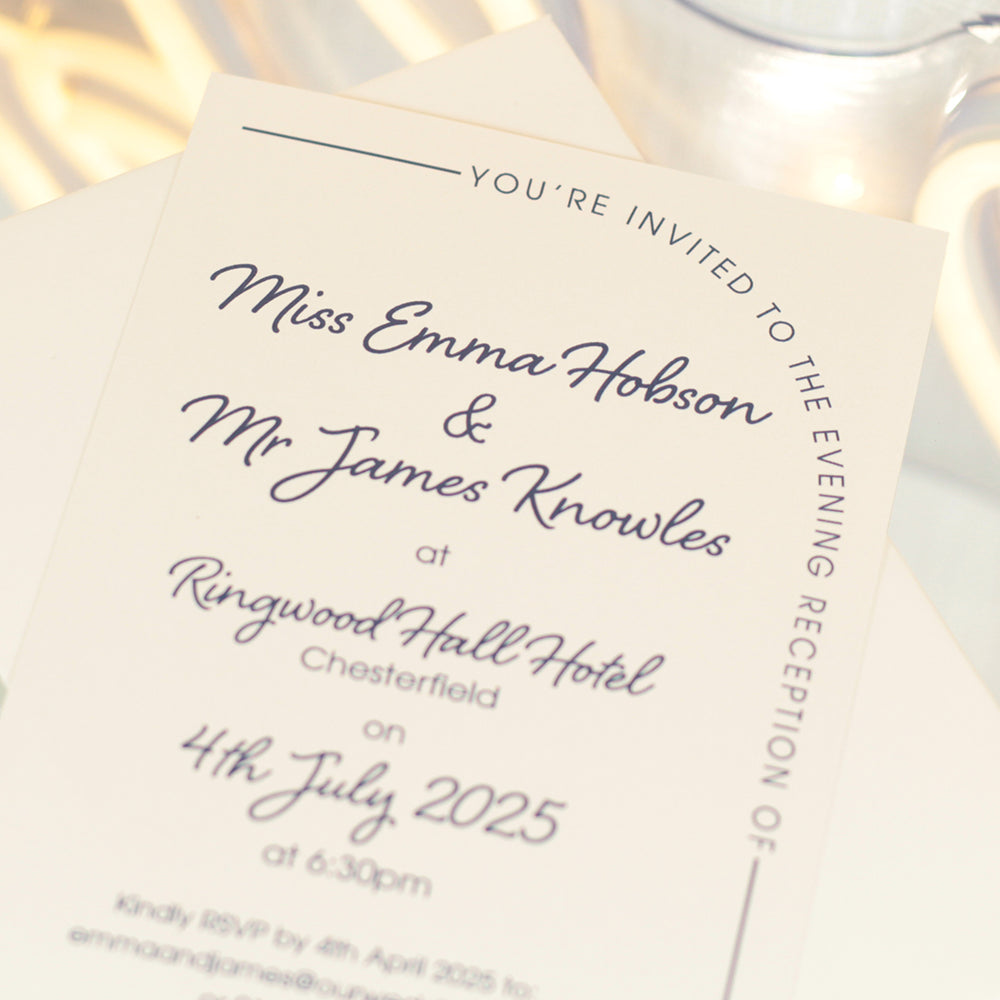 YOU'RE INVITED TO THE EVENING RECEPTION OF
Miss Emma Hobson
&
Mr James Knowles
at
Ringwood Hall Hotel
Chesterfield
on
4th July 2025
at 6:30pm
Kindly RSVP by 4th April 2025 to: